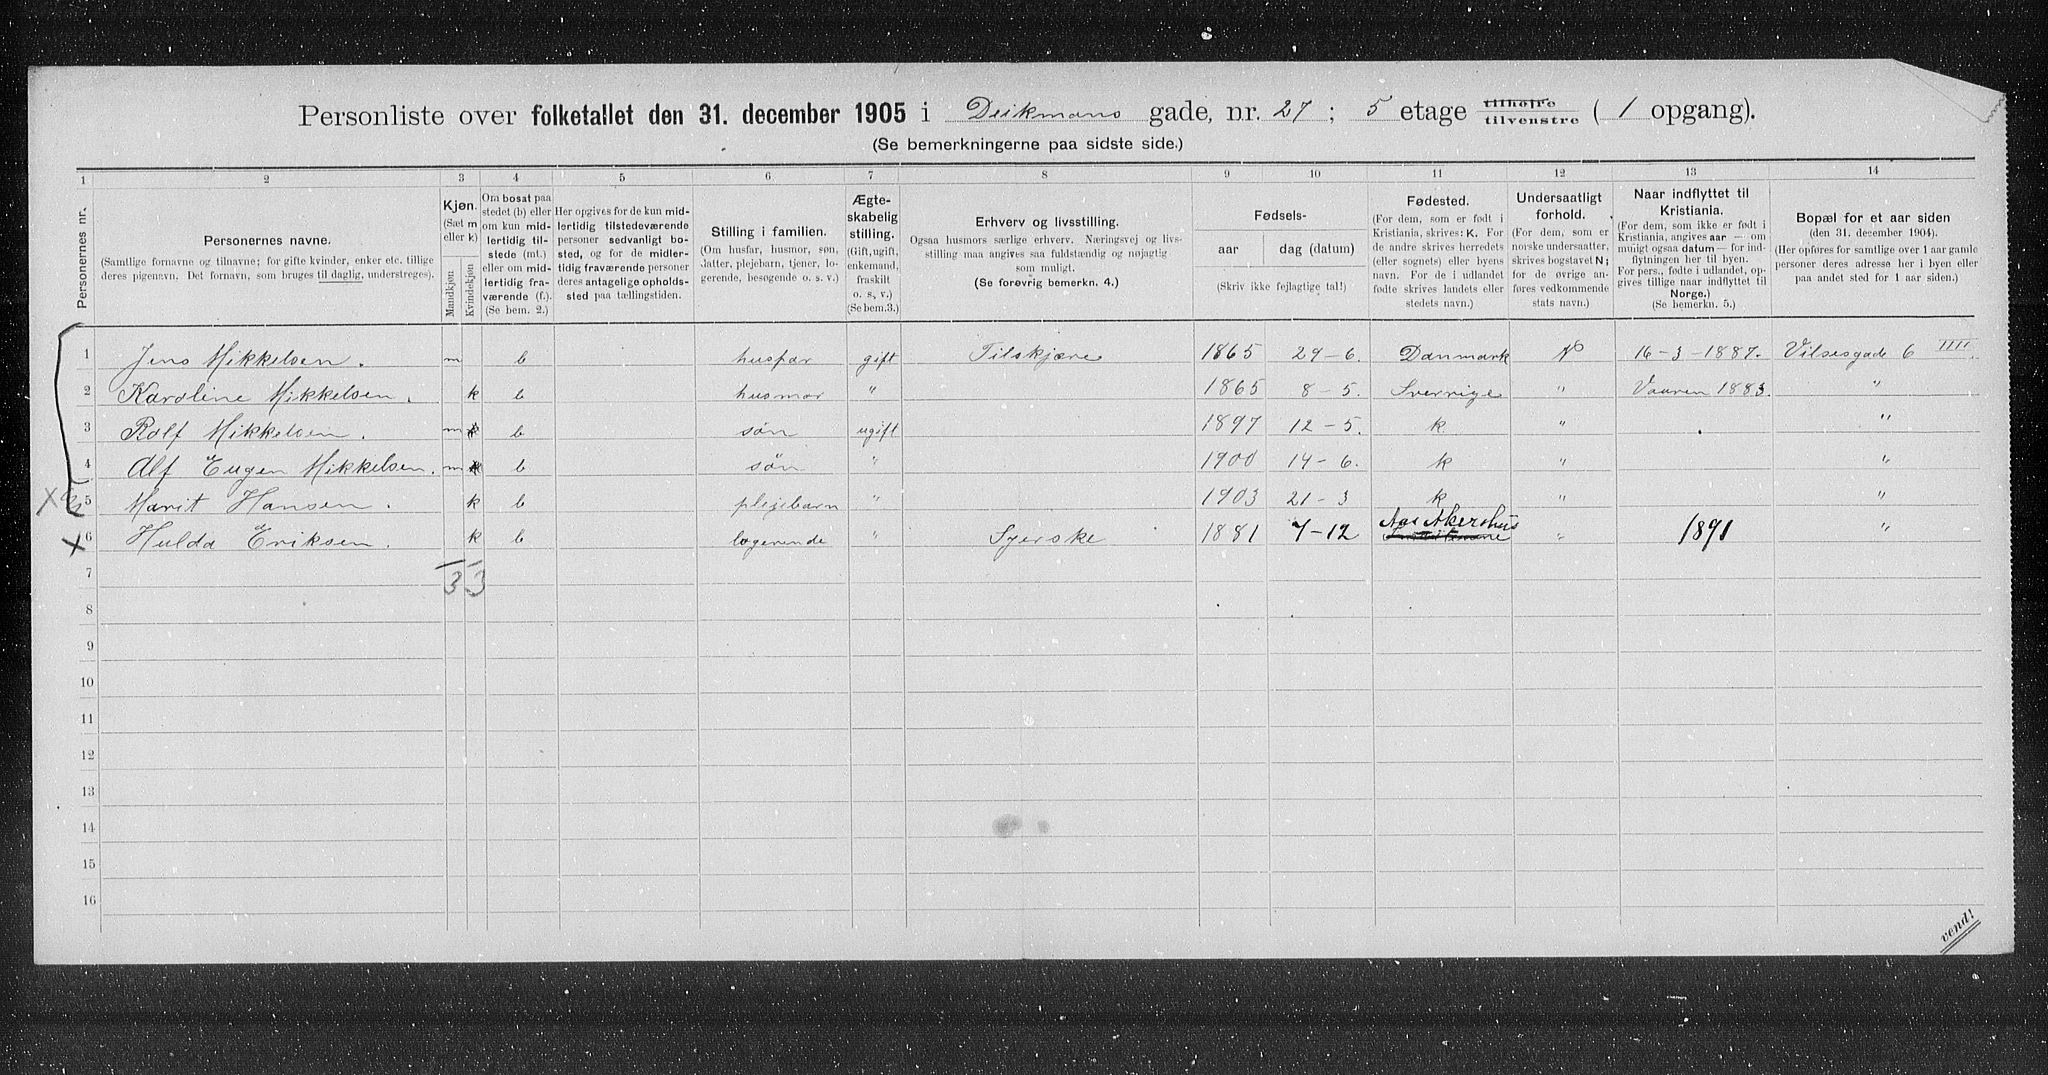 Personliste over folketallet den 31. december 1905 i Deikmans gade, nr. 27; 5 etage tilhøire tilvenstre ( 1 opgang).
(Se bemerkningerne paa sidste side.)
1 2 3 4 5 6 7 8 9 10 11 12 13 14
Personernes nr.
Personernes navne.
(Samtlige fornavne og tilnavne; for gifte kvinder, enker etc. tillige
deres pigenavn. Det fornavn, som bruges til daglig, understreges).
Kjøn.
(Sæt m
eller k)
Mandkjøn
Kvindekjøn
Om bosat paa
stedet (b) eller
om kun mid-
lertidig til-
stede (mt.)
eller om mid-
lertidig fra-
værende (f.).
(Se bem. 2.)
Her opgives for de kun mid-
lertidig tilstedeværende
personer sedvanlig bo-
sted, og for de midler-
tidig fraværende personer
deres antagelige opholds-
sted paa tællingstiden.
Stilling i familien.
(Om husfar, husmor, søn,
datter, plejebarn, tjener, lo-
gerende, besøgende o. s. v.)
Ægte-
skabelig
stilling.
(Gift, ugift,
enkemand,
fraskilt
o. s. v.)
(Se bem.3.)
Erhverv og livsstilling.
Ogsaa husmors særlige erhverv. Næringsvej og livs-
stilling maa angives saa fuldstændig og nøjagtig
som muligt.
(Se forøvrig bemerkn. 4.)
Fødsels-
aar dag (datum)
(Skriv ikke fejlagtige tal!)
Fødested.
(For dem, som er født i
Kristiania, skrives: K. For
de andre skrives herredets
(eller sognets) eller byens
navn. For de i udlandet
fødte skrives landets eller
stedets navn.)
Undersaatligt
forhold.
(For dem, som er
norske undersaatter,
skrives bogstavet N;
for de øvrige an-
føres vedkommende
stats navn.)
Naar indflyttet til
Kristiania.
(For dem, som ikke er født i
Kristiania, angives aar — om
muligt ogsaa datum — for ind-
flytningen her til byen.
For pers., fødte i udlandet, op-
gives tillige naar indflyttet til
Norge.)
(Se bemerkn. 5.)
Bopæl for et aar siden
(den 31. december 1904).
(Her opføres for samtlige over 1 aar gamle
personer deres adresse her i byen eller
paa andet sted for 1 aar siden.)
1 Jens Mikkelsen. m b husfar gift Tilskjære 1865 29-6. Danmark N 16-3-1887. Vilsesgade 6 IIII
2 Karoline Mikkelsen. k b husmor " 1865 8-5. Sverrige " Vaaren 1883. "
3 Rolf Mikkelsen. m b søn ugift 1897 12-5. k " "
4 Alf Eugen Mikkelsen. m b søn " 1900 14-6. k " "
5 Marit Hansen. k b plejebarn " 1903 21-3 k " "
6 Hulda Eriksen. k b logerende " Syerske 1881 7-12 Aas Akershus " 1891 "
7 3 3
8
9
10
11
12
13
14
15
16
vend!